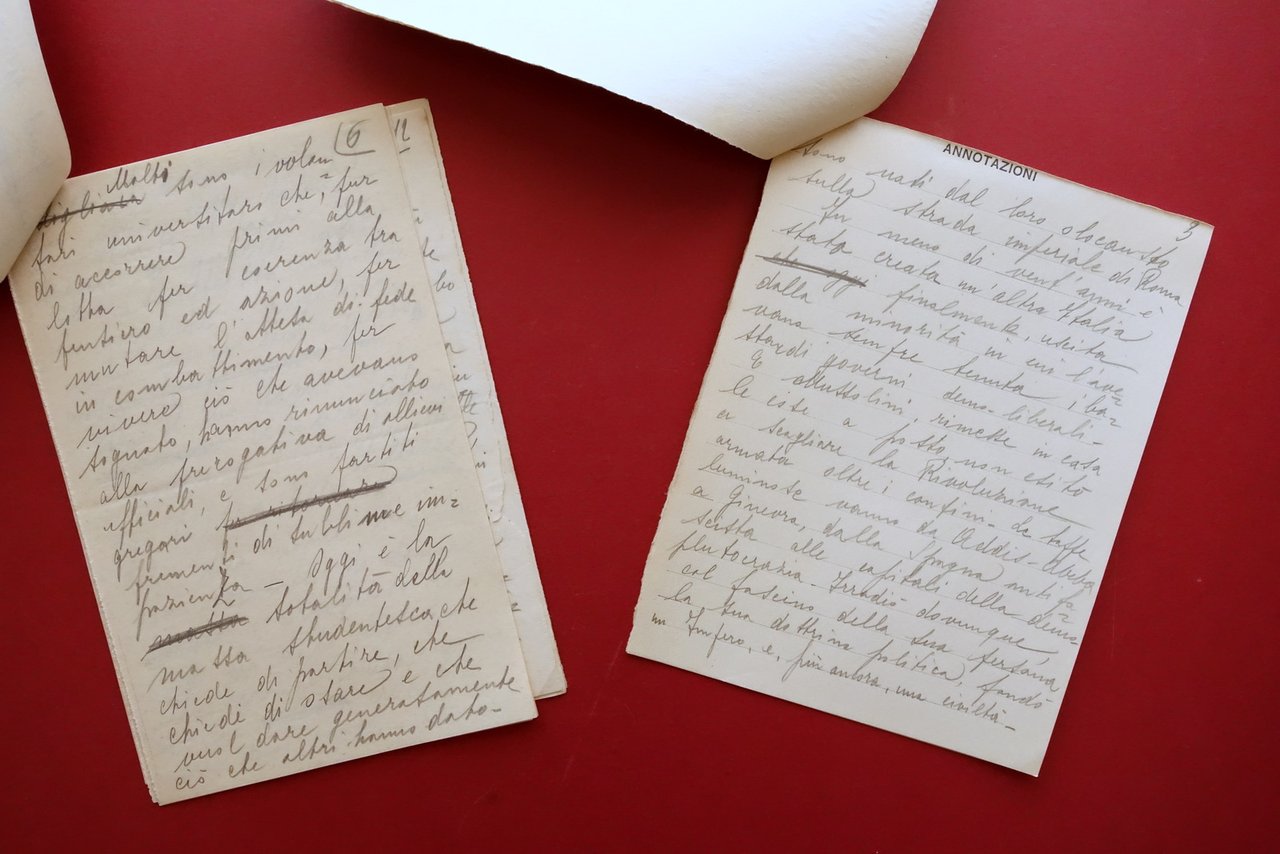 6
Molti
sono i volon
tari universitari che, per
di accorrere primi alla
lotta per coerenza tra
pensiero ed azione, per
mutare l'attesa di fede
in combattimento, per
vivere ciò che avevano
sognato, hanno rinunciato
alla prerogativa di allievi
ufficiali, e sono partiti
gregari
frementi di sublime im=
pazienza - Oggi è la
totalità della
massa studentesca, che
chiede di partire, che
chiede di osare e che
vuol dare generosamente
ciò che altri hanno dato -
11
ANNOTAZIONI
3
sono nati dal loro olocausto
sulla strada imperiale di Roma
In meno di vent'anni è
stata creata un'altra Italia
finalmente, uscita
dalla minorità in cui l'ave=
vano sempre tenuta i ba=
stardi governi demo-liberali -
E Mussolini, rimesse in casa
le cose a posto, non esitò
a scagliare la Rivoluzione
armata oltre i confini - Le tappe
luminose vanno da Addis-Abeba
a Ginevra, dalla Spagna antifa=
scista alle capitali della demo=
plutocrazia - Irradiò dovunque
col fascino della sua persona
la sua dottrina politica, fondò
un Impero, e, più ancora, una civiltà -